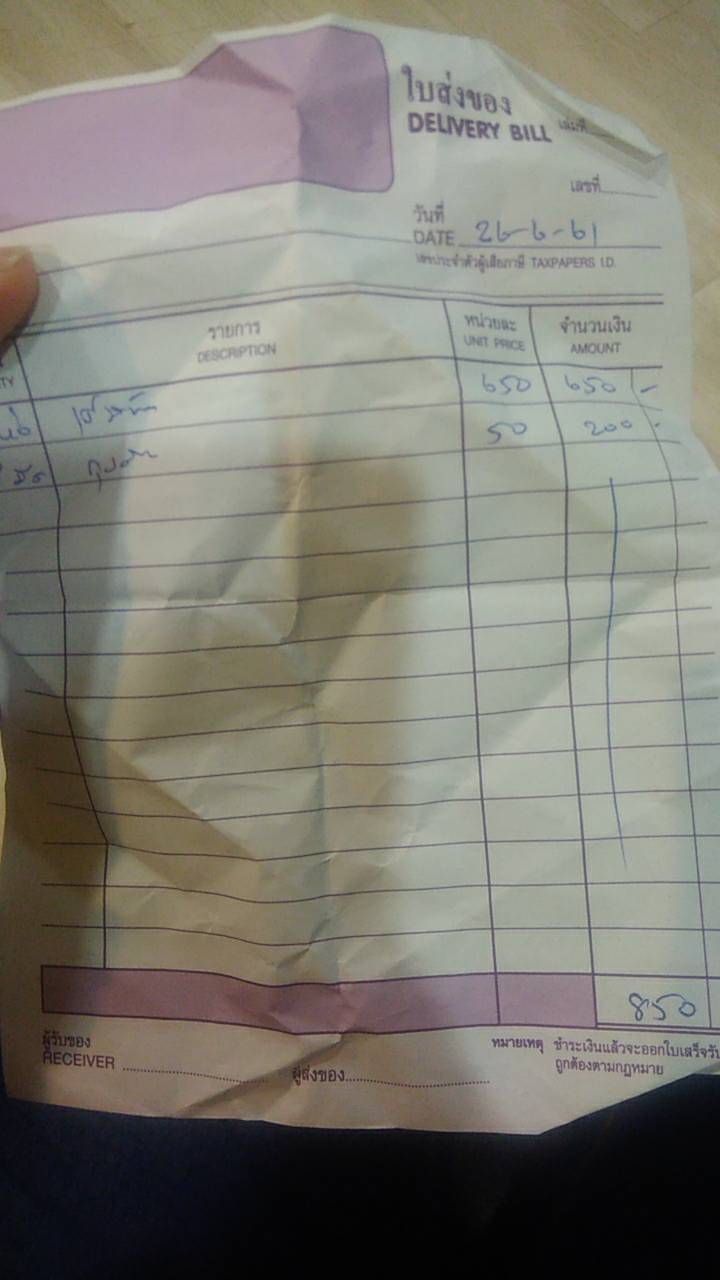 ใบส่งของ
DELIVERY BILL
เล่มที่
เลขที่
วันที่
DATE 26-6-61
เลขประจำตัวผู้เสียภาษี TAXPAPERS I.D.
รายการ หน่วยละ จำนวนเงิน
TY DESCRIPTION UNIT PRICE AMOUNT
650 650 -
50 200 -
850
ผู้รับของ
RECEIVER ผู้ส่งของ
หมายเหตุ ชำระเงินแล้วจะออกใบเสร็จรับ
ถูกต้องตามกฎหมาย